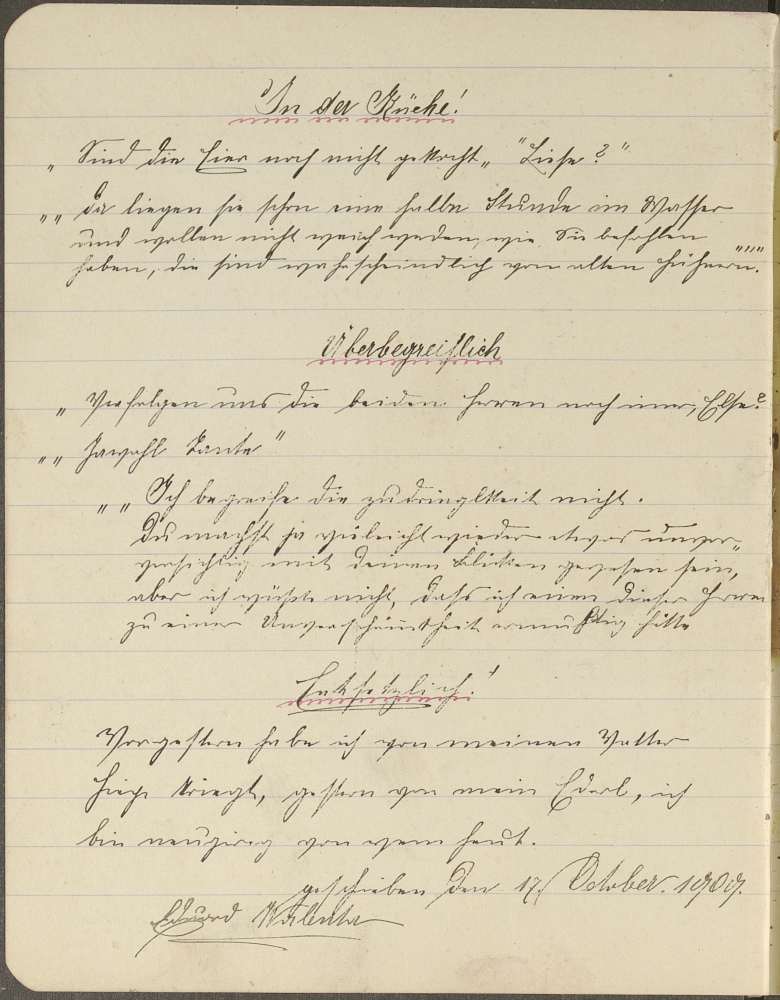 In der Küche!
„ Sind die Eier noch nicht gekocht „ "Liese?"
„ „ Da liegen sie schon eine halbe Stunde im Wasser
und wollen nicht weich werden, wie Sie befohlen
haben, die sind wahrscheindlich von alten Hühnern.""""
Überbegreiflich
„ Verfolgen uns die beiden Herren noch imer, Else?
„ „ Jawohl Tante"
„ „ Ich begreife die zudringlkeit nicht.
Du machst ja vieleicht wieder etwas unvor„
vorsichtig mit deinen Blicken gewesen sein,
aber ich wüßte nicht, daß ich einen dieser Herren
zu einer Unverschämtheit ermuthig hätte
Entsetzlich!
Vorgestern habe ich von meinen Vatter
Hiege kriegt, gestern von mein Ederl, ich
bin neugirig von wem heut.
geschieben den 17. October. 1909.
Eduard Walenta